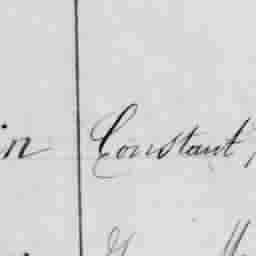 in Constant,